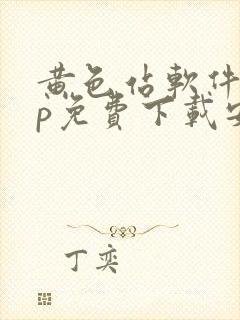 黄色估軟件
p免費下載安
丁奕